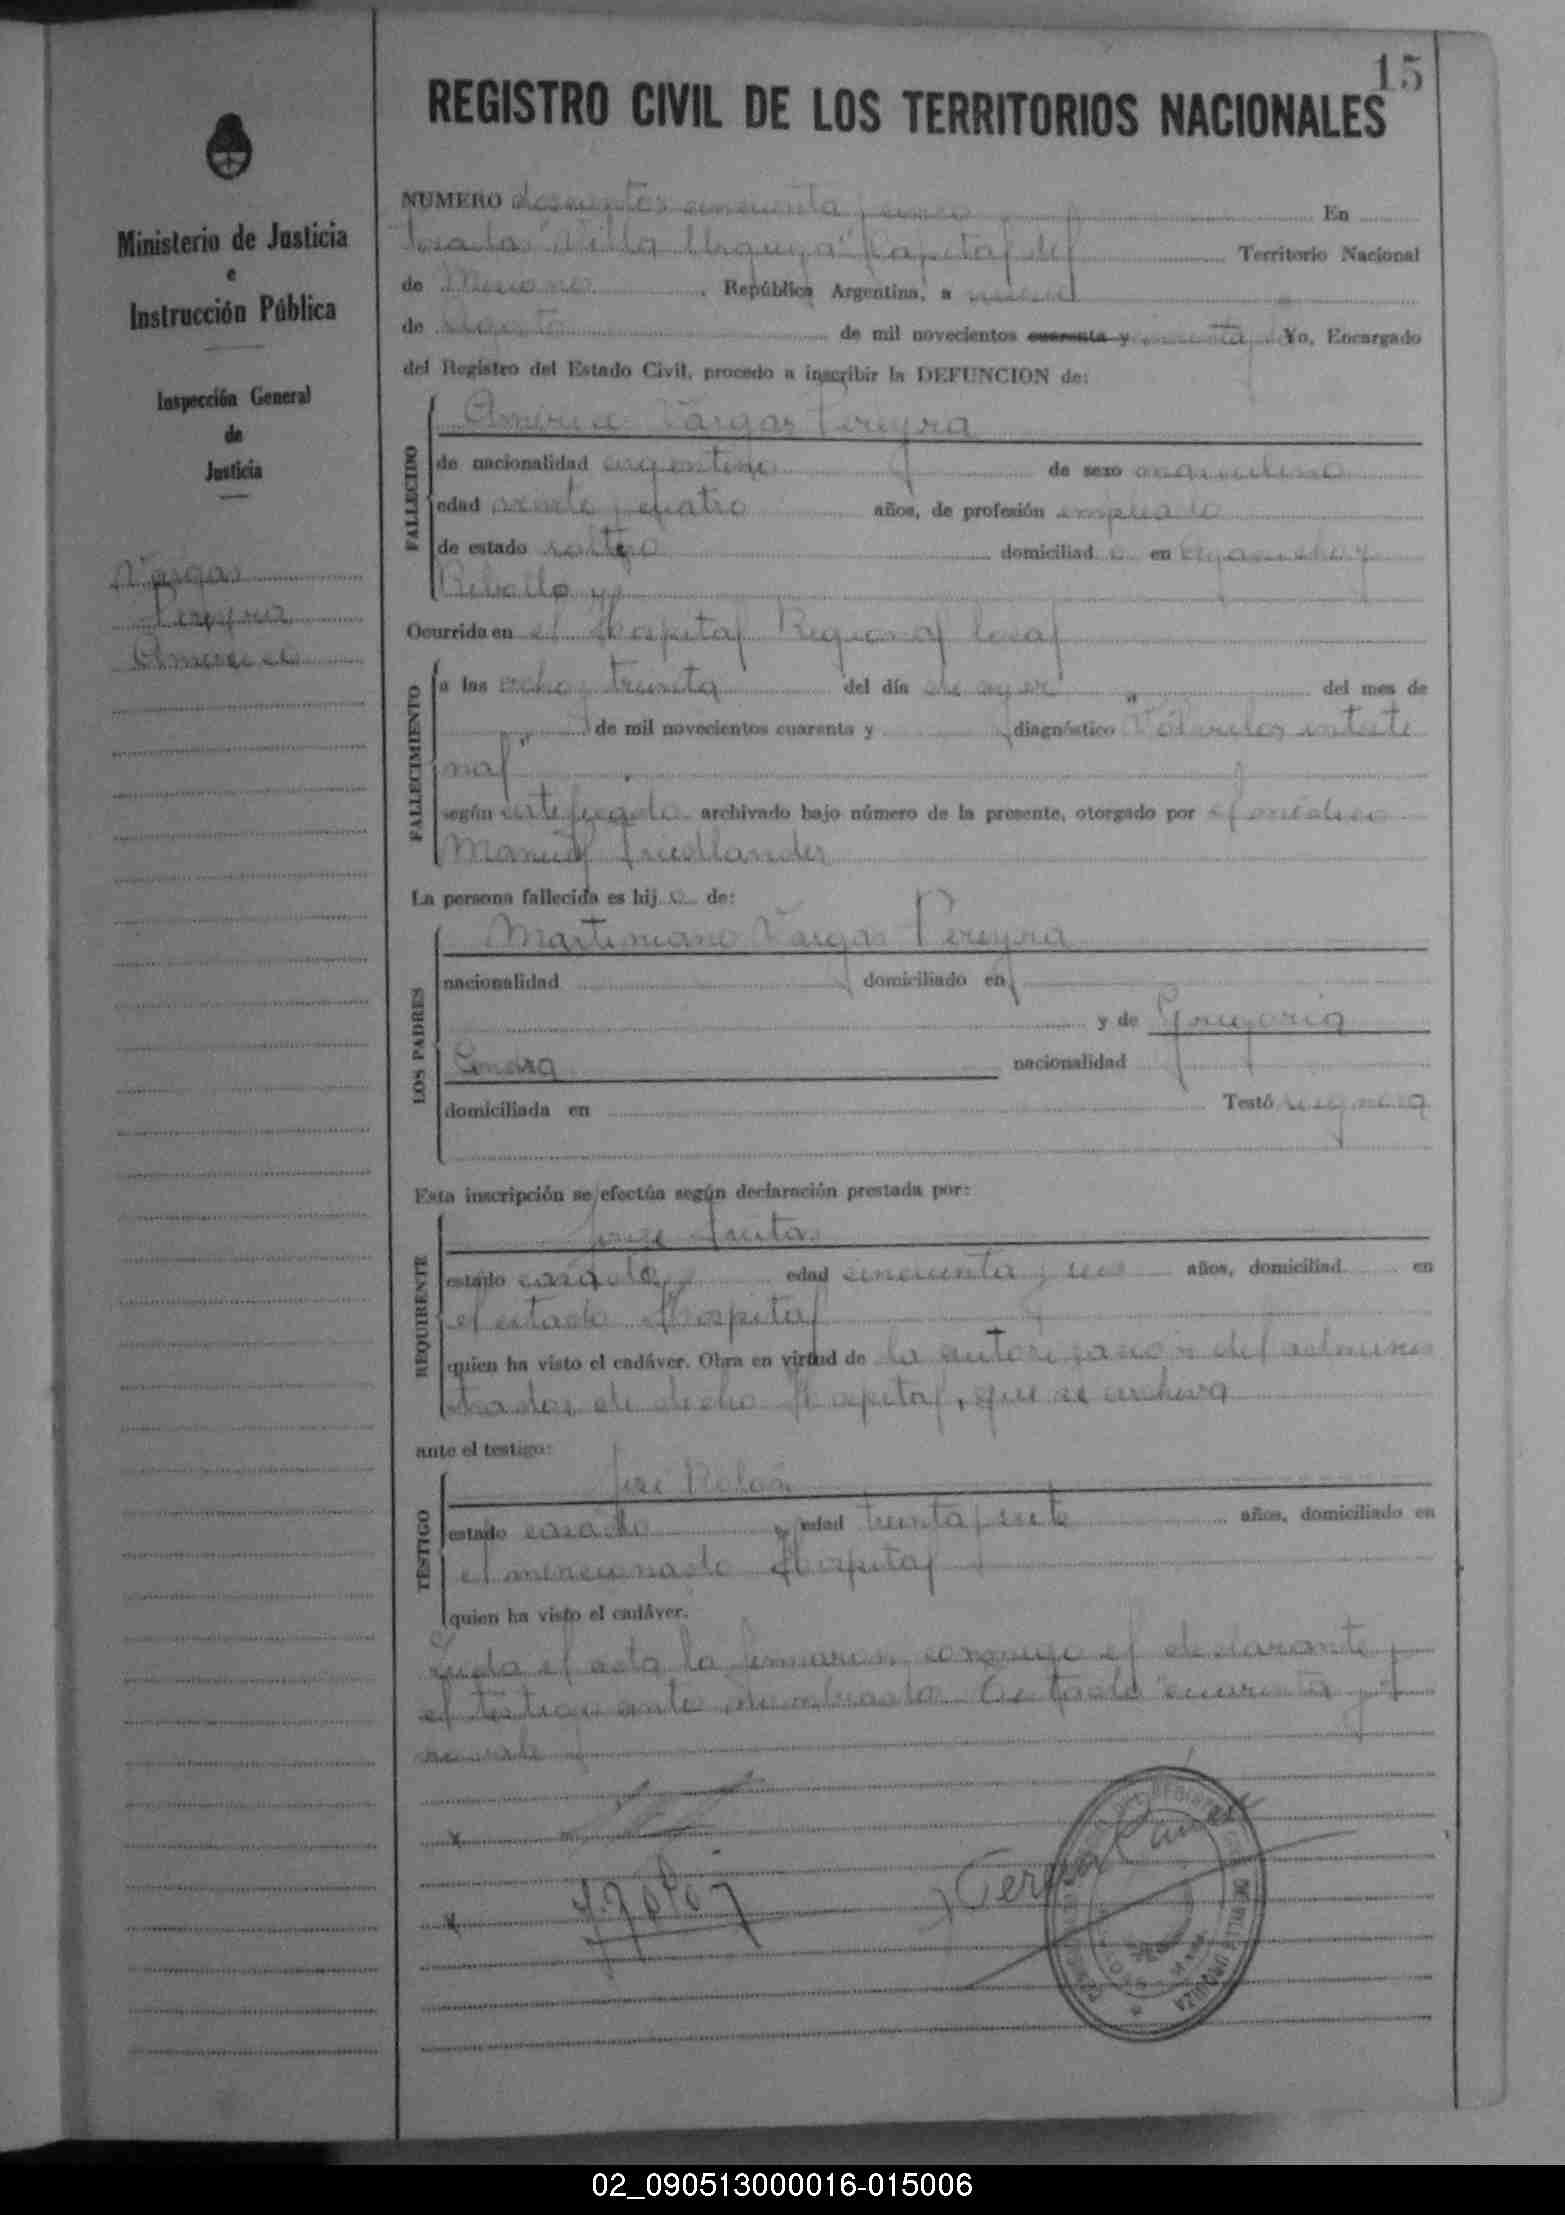 15
REGISTRO CIVIL DE LOS TERRITORIOS NACIONALES
Ministerio de Justicia
e
Instrucción Pública
Inspección General
de
Justicia
Vargas
Pereyra
Americo
NUMERO doscientos cincuenta y cinco En
Posadas "Villa Urquiza" Capital del Territorio Nacional
de Misiones República Argentina, a nueve
de Agosto de mil novecientos cuarenta y cincuenta Yo, Encargado
del Registro del Estado Civil, procedo a inscribir la DEFUNCION de:
FALLECIDO
Américo Vargas Pereyra
de nacionalidad argentino de sexo masculino
edad veinte y cuatro años, de profesión empleado
de estado soltero domiciliad o en Ayacucho y
Rebollo
Ocurrida en el Hospital Regional local
FALLECIMIENTO
a las ocho y treinta del día de ayer " del mes de
" de mil novecientos cuarenta y diagnóstico Vólvulos intesti
nal
según certificado archivado bajo número de la presente, otorgado por el médico
Manuel Friedlander
La persona fallecida es hij o de:
LOS PADRES
Martiniano Vargas Pereyra
nacionalidad domiciliado en
y de Gregoria
nacionalidad
domiciliada en Testó se ignora
Esta inscripción se efectúa según declaración prestada por:
REQUIRENTE
Freitas
estado casado edad cincuenta y uno años, domiciliad en
el citado Hospital
quien ha visto el cadáver. Obra en virtud de la autorización del adminis
trador de dicho Hospital, que se archiva
ante el testigo:
TESTIGO
José Rolón
estado casado y edad treinta y siete años, domiciliado en
el mencionado Hospital
quien ha visto el cadáver.
Leída el acta la firmaron conmigo el declarante y
el testigo antes nombrados. Testado "cuarenta y"
no vale
x
x
DE VILLA URQUIZA
02_090513000016-015006